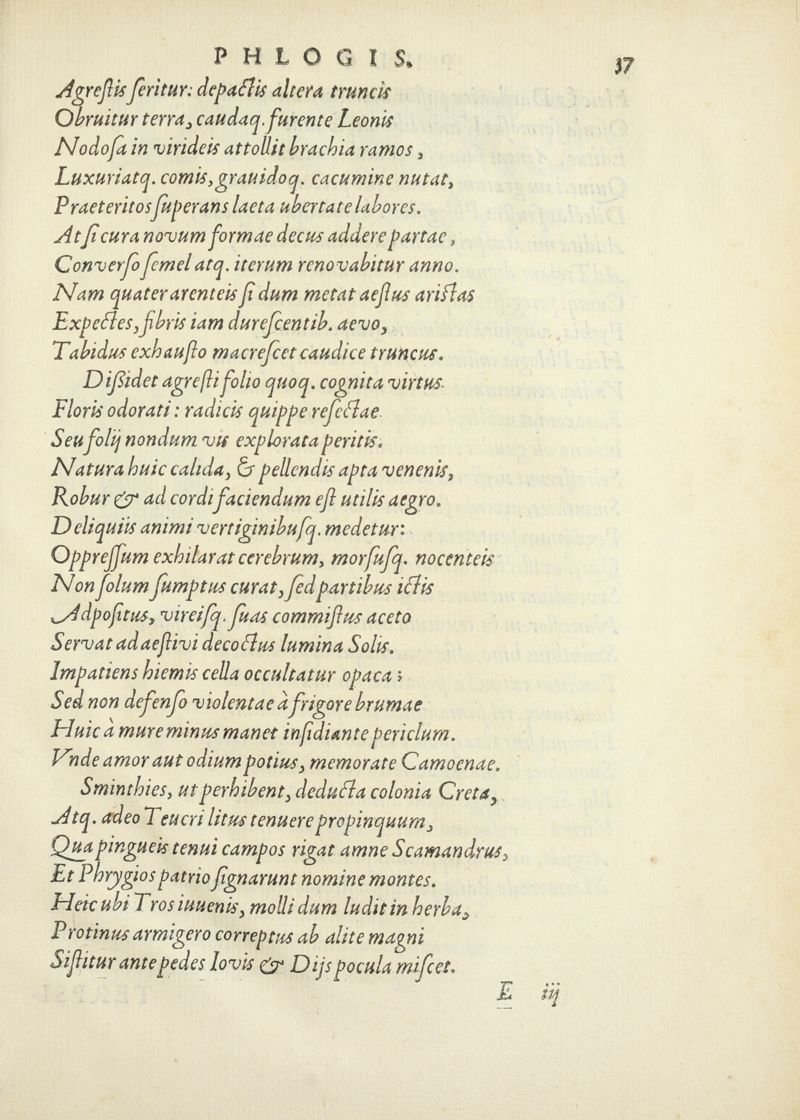 PHLOGIS. 37
Agreſtis feritur: depactis altera truncis
Obruitur terra, caudaq. furente Leonis
Nodoſa in virideis attollit brachia ramos,
Luxuriatq. comis, grauidoq. cacumine nutat,
Praeteritos ſuperans laeta ubertate labores.
At ſi cura novum formae decus addere partae,
Converſo ſemel atq. iterum renovabitur anno.
Nam quater arenteis ſi dum metat aeſtus ariſtas
Expectes, fibris iam dureſcentib. aevo,
Tabidus exhauſto macreſcet caudice truncus.
Diſsidet agreſti folio quoq. cognita virtus.
Floris odorati: radicis quippe reſectae
Seu folij nondum vis explorata peritis.
Natura huic calida, & pellendis apta venenis,
Robur & ad cordi faciendum eſt utilis aegro.
Deliquiis animi vertiginibuſq. medetur:
Oppreſſum exhilarat cerebrum, morſuſq. nocenteis
Non ſolum ſumptus curat, ſed partibus ictis
Adpoſitus, vireiſq. ſuas commiſtus aceto
Servat ad aeſtivi decoctus lumina Solis.
Impatiens hiemis cella occultatur opaca;
Sed non defenſo violentae à frigore brumae
Huic à mure minus manet inſidiante periclum.
Vnde amor aut odium potius, memorate Camoenae.
Sminthies, ut perhibent, deducta colonia Creta,
Atq. adeo Teucri litus tenuere propinquum,
Qua pingueis tenui campos rigat amne Scamandrus,
Et Phrygios patrio ſignarunt nomine montes.
Heic ubi Tros iuuenis, molli dum ludit in herba,
Protinus armigero correptus ab alite magni
Siſtitur ante pedes Iovis & Dijs pocula miſcet.
E iij